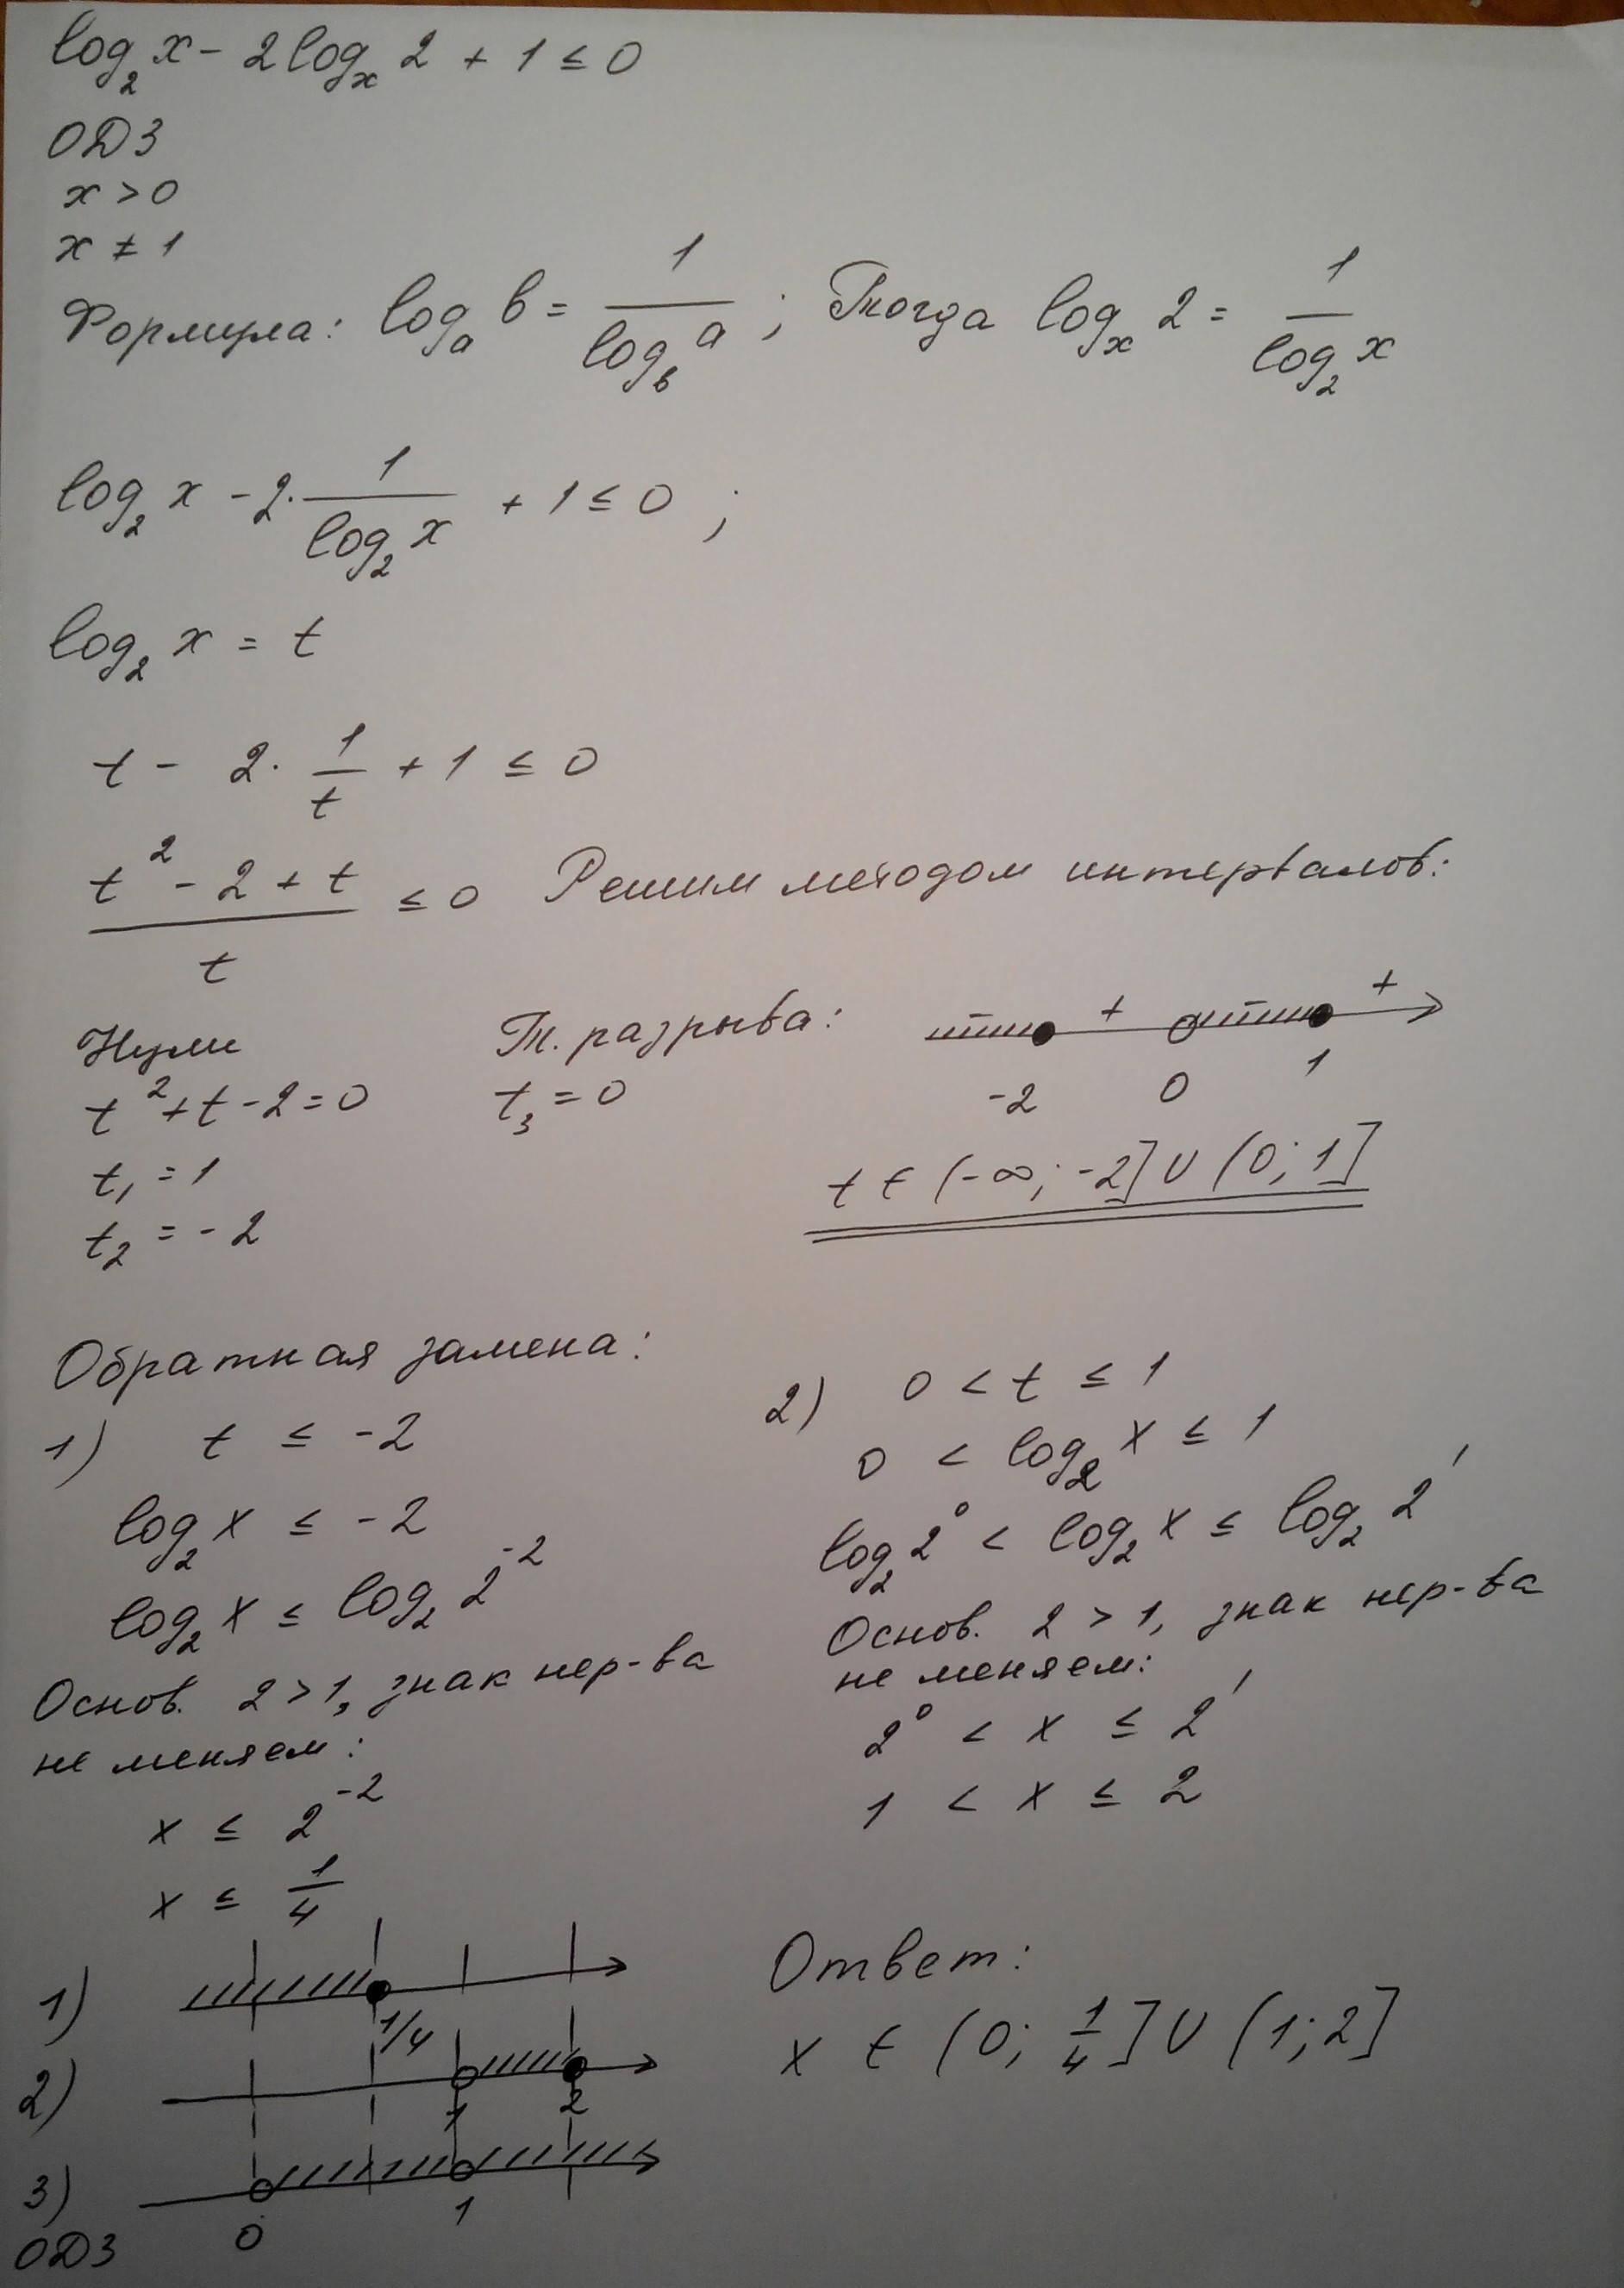 log₂ x - 2 logₓ 2 + 1 ≤ 0
ОДЗ
x > 0
x ≠ 1
Формула: logₐ b = 1/(log_b a) ; Тогда logₓ 2 = 1/(log₂ x)
log₂ x - 2 · 1/(log₂ x) + 1 ≤ 0 ;
log₂ x = t
t - 2 · 1/t + 1 ≤ 0
(t² - 2 + t)/t ≤ 0 Решим методом интервалов:
Нули
t² + t - 2 = 0
t₁ = 1
t₂ = -2
Т. разрыва:
t₃ = 0
- + - +
-2 0 1
t ∈ (-∞; -2] ∪ (0; 1]
Обратная замена:
1) t ≤ -2
log₂ x ≤ -2
log₂ x ≤ log₂ 2⁻²
Основ. 2 > 1, знак нер-ва
не меняем:
x ≤ 2⁻²
x ≤ 1/4
2) 0 < t ≤ 1
0 < log₂ x ≤ 1
log₂ 2⁰ < log₂ x ≤ log₂ 2¹
Основ. 2 > 1, знак нер-ва
не меняем:
2⁰ < x ≤ 2¹
1 < x ≤ 2
1)
1/4
2)
1 2
3)
ОДЗ
0 1
Ответ:
x ∈ (0; 1/4] ∪ (1; 2]